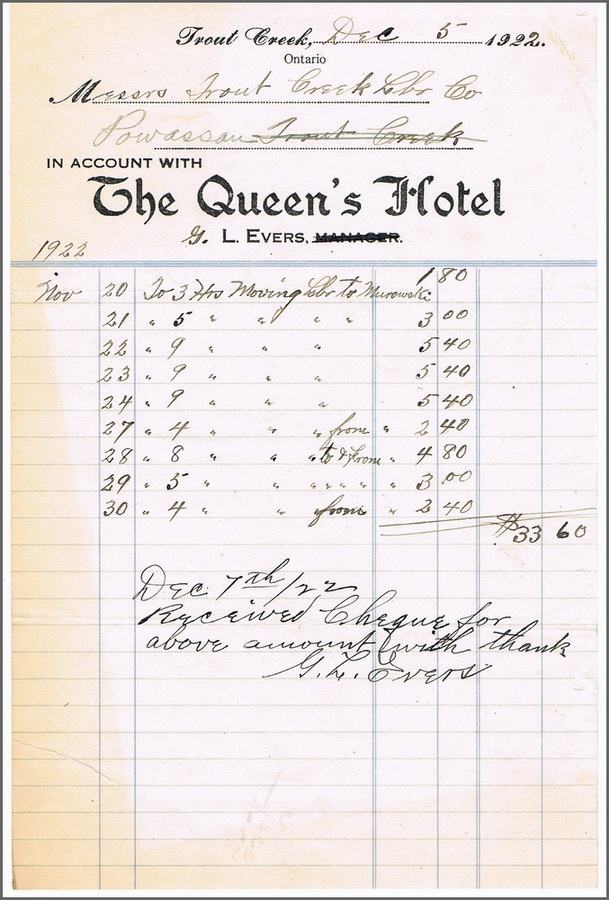 Trout Creek, Dec 5 1922.
Ontario
Messrs Trout Creek Lbr Co
Powassan Trout Creek
IN ACCOUNT WITH
The Queen's Hotel
G. L. EVERS, MANAGER.
1922
Nov 20 To 3 Hrs Moving Lbr to Murowski 1 80
21 " 5 " " " " 3 00
22 " 9 " " " 5 40
23 " 9 " " " 5 40
24 " 9 " " " 5 40
27 " 4 " " " from " 2 40
28 " 8 " " " to & From " 4 80
29 " 5 " " " " " " " 3 00
30 " 4 " " from " 2 40
$33 60
Dec 7th/22
Received Cheque for
above amount with thank
G. L. Evers